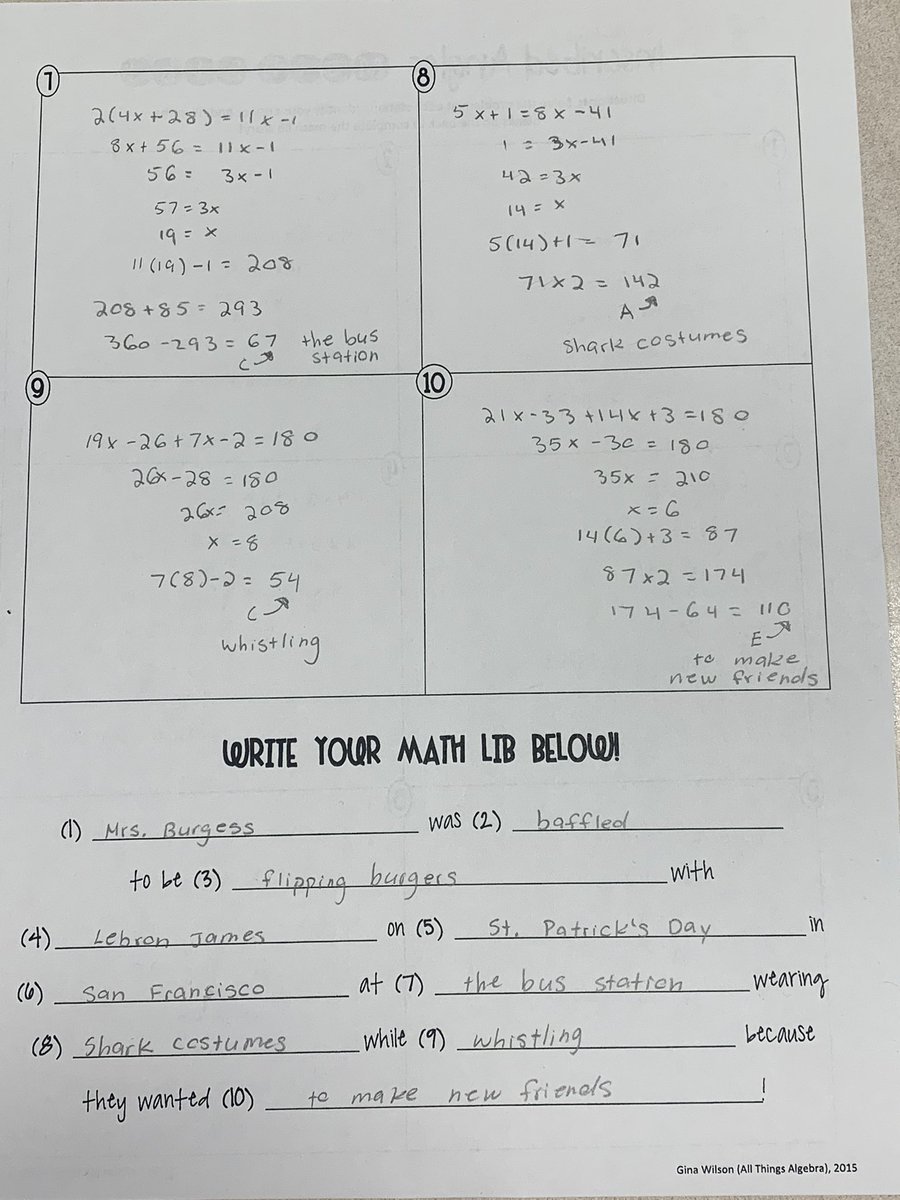 7
2(4x + 28) = 11x - 1
8x + 56 = 11x - 1
56 = 3x - 1
57 = 3x
19 = x
11(19) - 1 = 208
208 + 85 = 293
360 - 293 = 67 the bus
C station
8
5x + 1 = 8x - 41
1 = 3x - 41
42 = 3x
14 = x
5(14) + 1 = 71
71 x 2 = 142
A
Shark costumes
9
19x - 26 + 7x - 2 = 180
26x - 28 = 180
26x = 208
x = 8
7(8) - 2 = 54
C
whistling
10
21x - 33 + 14x + 3 = 180
35x - 30 = 180
35x = 210
x = 6
14(6) + 3 = 87
87 x 2 = 174
174 - 64 = 110
E
to make
new friends
WRITE YOUR MATH LIB BELOW!
(1) Mrs. Burgess was (2) baffled
to be (3) flipping burgers with
(4) Lebron James on (5) St. Patrick's Day in
(6) San Francisco at (7) the bus station wearing
(8) Shark costumes while (9) whistling because
they wanted (10) to make new friends !
Gina Wilson (All Things Algebra), 2015